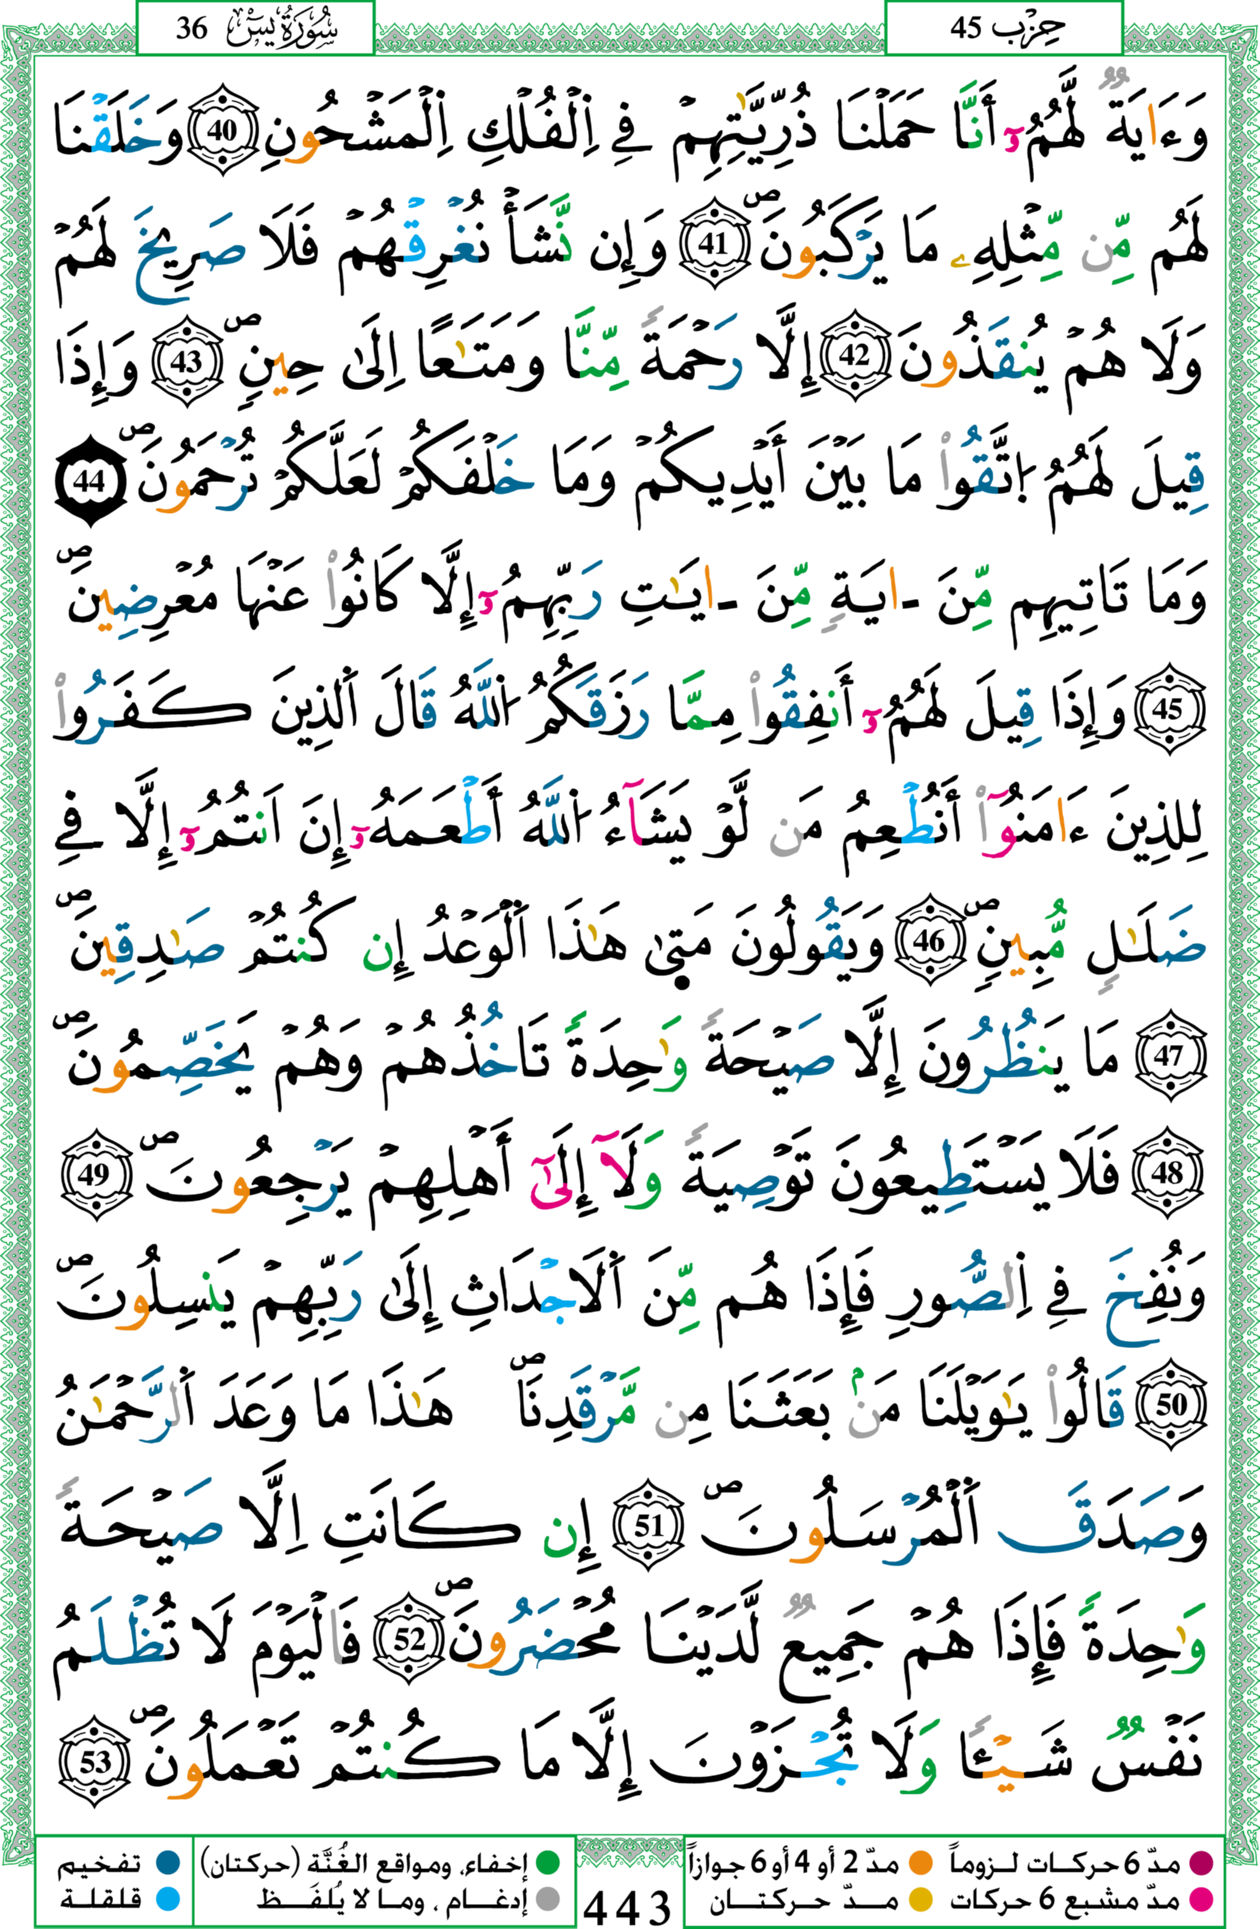 حِزْب 45
سُورَةُ يسٓ 36
وَءَايَةٌ لَّهُمُۥٓ أَنَّا حَمَلْنَا ذُرِّيَّٰتِهِمْ فِے اِ۬لْفُلْكِ اِ۬لْمَشْحُونِ 40 وَخَلَقْنَا
لَهُم مِّن مِّثْلِهِۦ مَا يَرْكَبُونَۖ 41 وَإِن نَّشَأْ نُغْرِقْهُمْ فَلَا صَرِيخَ لَهُمْ
وَلَا هُمْ يُنقَذُونَ 42 إِلَّا رَحْمَةً مِّنَّا وَمَتَٰعًا اِلَىٰ حِينٍۖ 43 وَإِذَا
قِيلَ لَهُمُ اُ۪تَّقُواْ مَا بَيْنَ أَيْدِيكُمْ وَمَا خَلْفَكُمْ لَعَلَّكُمْ تُرْحَمُونَۖ 44
وَمَا تَاتِيهِم مِّنَ اٰيَةٍ مِّنَ اٰيَٰتِ رَبِّهِمُۥٓ إِلَّا كَانُواْ عَنْهَا مُعْرِضِينَۖ
45 وَإِذَا قِيلَ لَهُمُۥٓ أَنفِقُواْ مِمَّا رَزَقَكُمُ اُ۬للَّهُ قَالَ اَ۬لذِينَ كَفَرُواْ
لِلذِينَ ءَامَنُوٓاْ أَنُطْعِمُ مَن لَّوْ يَشَآءُ اُ۬للَّهُ أَطْعَمَهُۥٓ إِنَ اَنتُمُۥٓ إِلَّا فِے
ضَلَٰلٍ مُّبِينٍۖ 46 وَيَقُولُونَ مَتۭىٰ هَٰذَا اَ۬لْوَعْدُ إِن كُنتُمْ صَٰدِقِينَۖ
47 مَا يَنظُرُونَ إِلَّا صَيْحَةً وَٰحِدَةً تَاخُذُهُمْ وَهُمْ يَخَصِّمُونَۖ
48 فَلَا يَسْتَطِيعُونَ تَوْصِيَةً وَلَآ إِلَىٰٓ أَهْلِهِمْ يَرْجِعُونَۖ 49
وَنُفِخَ فِے اِ۬لصُّورِ فَإِذَا هُم مِّنَ اَ۬لَاجْدَاثِ إِلَىٰ رَبِّهِمْ يَنسِلُونَۖ
50 قَالُواْ يَٰوَيْلَنَا مَنۢ بَعَثَنَا مِن مَّرْقَدِنَاۖ هَٰذَا مَا وَعَدَ اَ۬لرَّحْمَٰنُ
وَصَدَقَ اَ۬لْمُرْسَلُونَۖ 51 إِن كَانَتِ اِلَّا صَيْحَةً
وَٰحِدَةً فَإِذَا هُمْ جَمِيعٌ لَّدَيْنَا مُحْضَرُونَۖ 52 فَالْيَوْمَ لَا تُظْلَمُ
نَفْسٌ شَيْـًٔا وَلَا تُجْزَوْنَ إِلَّا مَا كُنتُمْ تَعْمَلُونَۖ 53
مدّ 6 حركات لـزوماً
مدّ 2 أو 4 أو 6 جوازاً
مدّ مشبع 6 حركات
مــدّ حـركتــان
443
إخفاء، ومواقع الغُنَّة (حركتان)
إدغـام ، ومـا لا يُلفَـظ
تفخيم
قلقلة